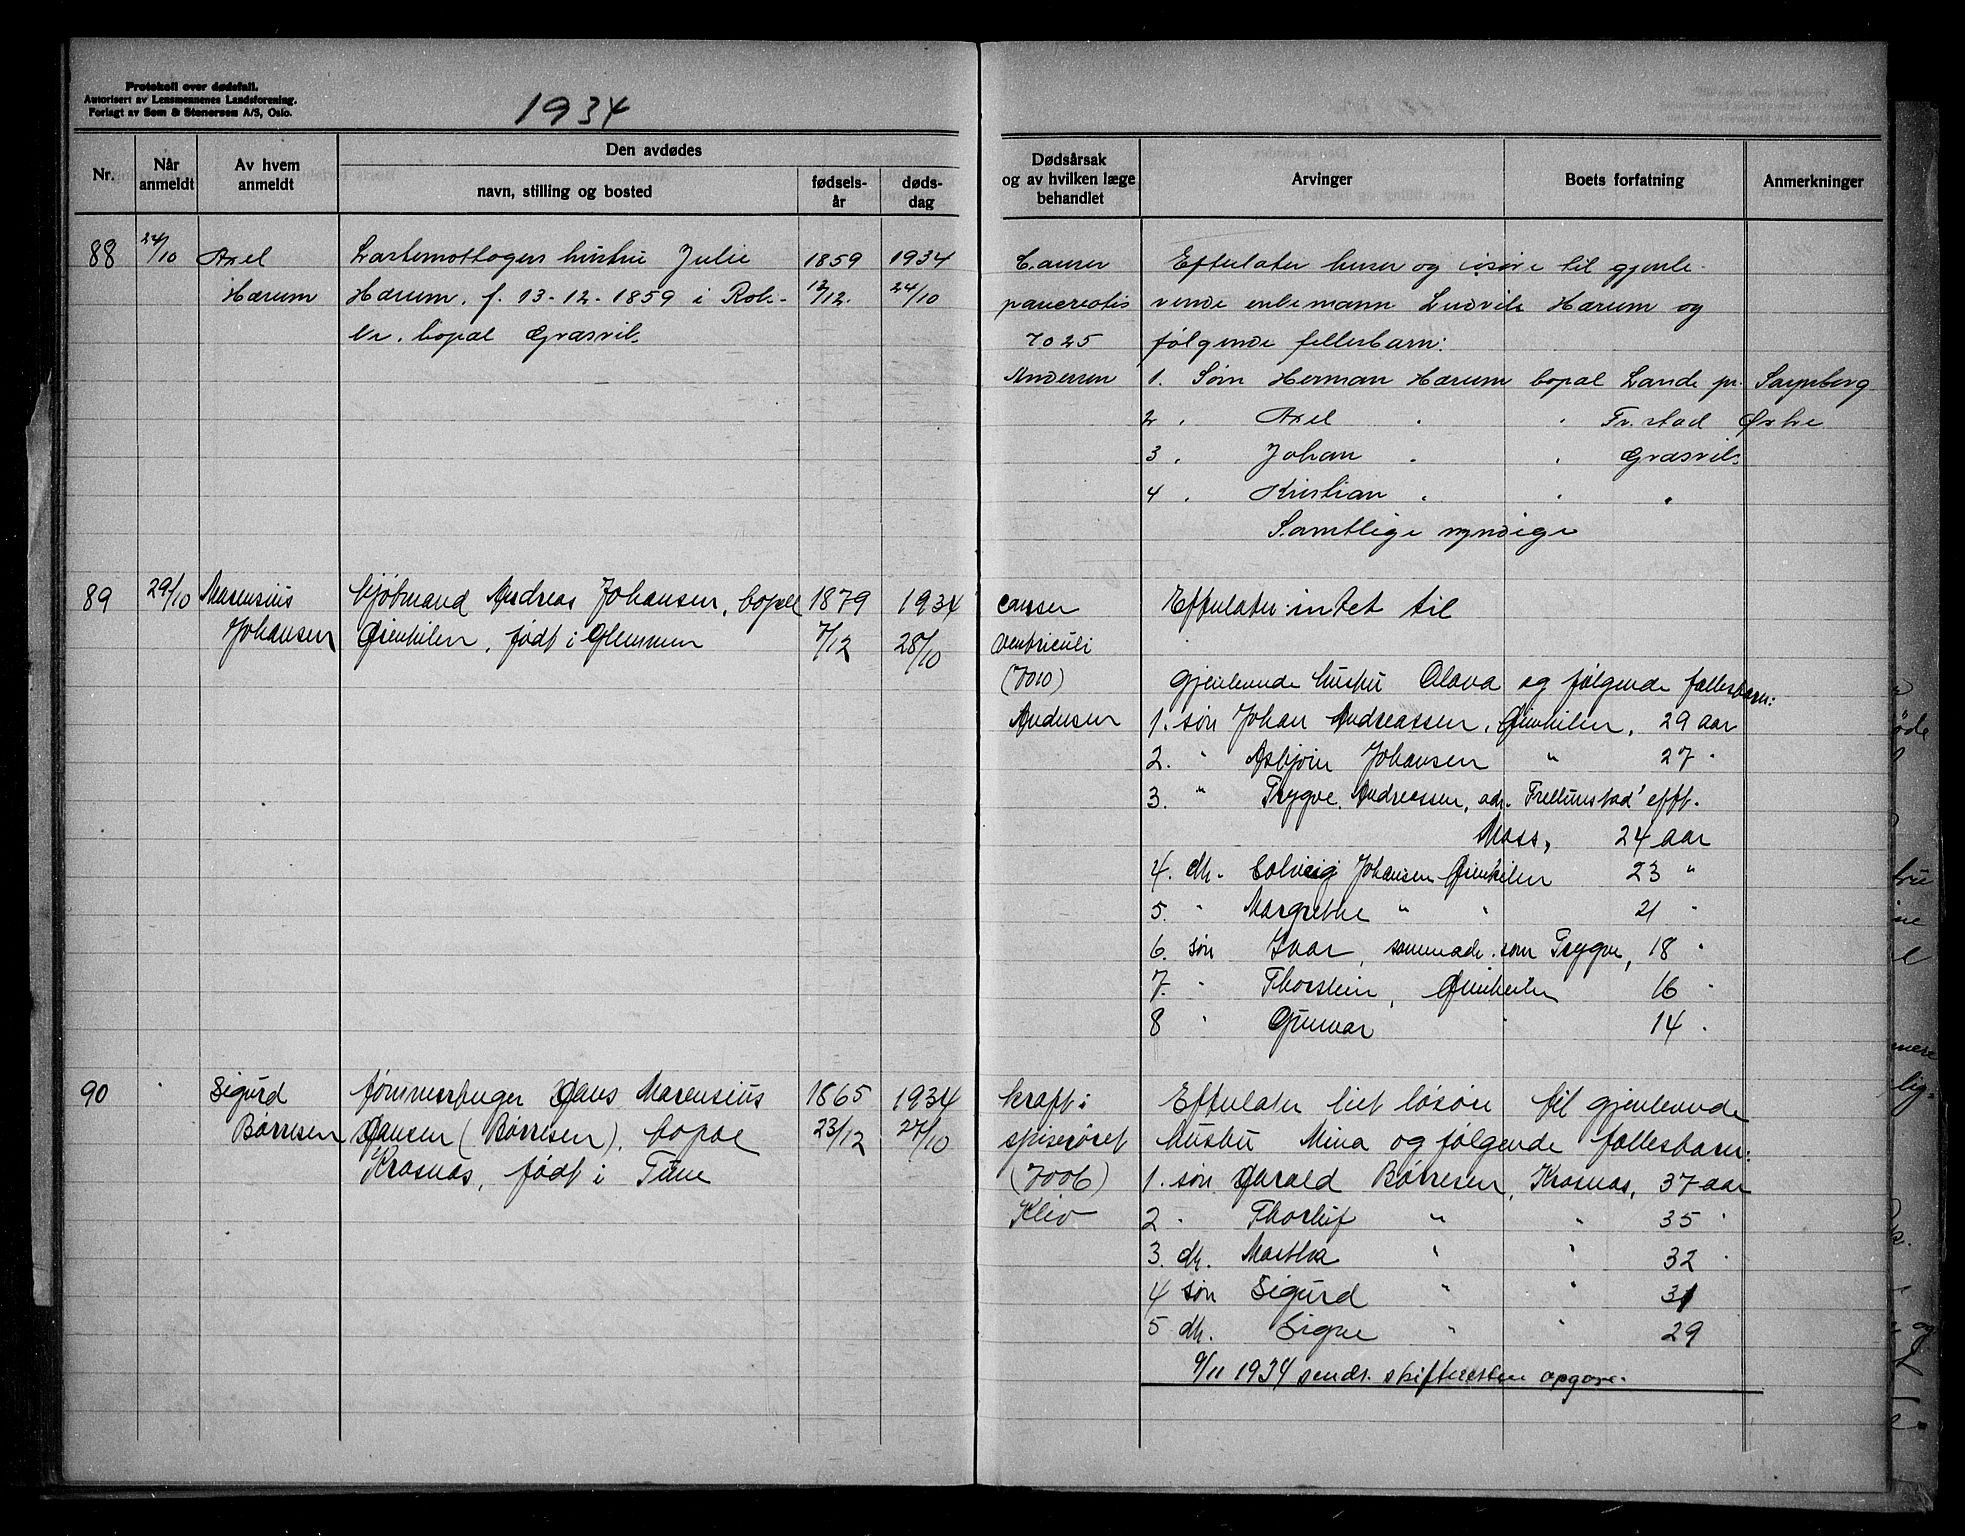 Protokoll over dødsfall.
Autorisert av Lensmennenes Landsforening.
Forlagt av Sem & Stenersen A/S, Oslo.
1934
Nr.
Når anmeldt
Av hvem anmeldt
Den avdødes
navn, stilling og bosted
fødsels-år
døds-dag
Dødsårsak og av hvilken læge behandlet
Arvinger
Boets forfatning
Anmerkninger
88 24/10 Axel Hærum
Lastemottagers hustru Julie
Hærum. f. 13-12-1859 i Rol-
bopæl Græsvik
1859 13/12.
1934 24/10
Cancer
7025
Andersen
Efterlater huser og løsøre til gjenle-
vende enkemann Ludvik Hærum og
følgende fellesbarn:
1. Søn Herman Hærum bopæl Lande pr. Sarpsborg
2 . Axel . . Fr.stad Østre
3 . Johan . . Græsvik
4 . Kristian . . .
Samtlige myndige
89 29/10 Marensius Johansen
Andreas Johansen, bopæl
Øienkilen, født i Glemmen
1879 7/12
1934 28/10
cancer
ventriculi
(7010)
Andersen
Efterlater intet til
gjenlevende hustru Olava og følgende fællesbarn:
1. søn Johan Andreassen, Øienkilen, 29 aar
2. " Asbjørn Johansen " 27 "
3. " Trygve Andreassen, adr. efft.
Moss, 24 aar
4. dtr. Solveig Johansen Øienkilen 23 "
5. " Margrethe " " 21 "
6. søn Ivar, samme adr. som Trygve, 18 "
7. " Thorstein, Øienkilen 16 "
8 " Gunvar " 14 "
90 " Sigurd Børresen
Hans Marensius
Hansen (Børresen), bopæl
Kraknæs, født i Tune
1865 23/12
1934 27/10
kræft i
spiserøret
(7006)
Kleiv
Efterlater litet løsøre til gjenlevende
hustru Mina og følgende fællesbarn:
1. søn Harald Børresen, Kraknæs, 37 aar
2 " Thorleif " " 35 "
3. dtr. Martha " " 32 "
4 søn Sigurd " " 31
5 dtr. Signe " " 29
9/11 1934 sendt skifteretten opgave.